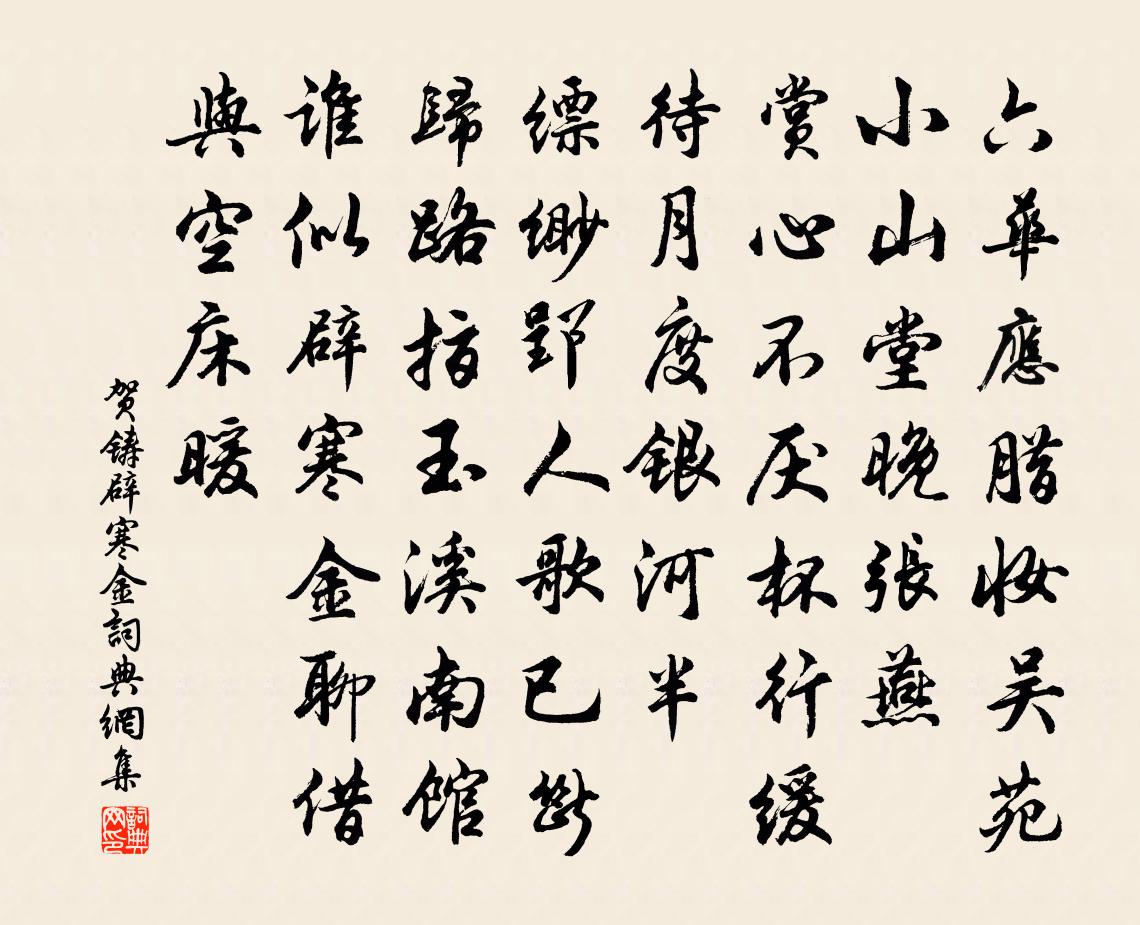 六華應臘妝吴苑
小山堂晚張燕
賞心不厌杯行缓
待月度銀河半
缥缈郢人歌已斷
歸路指玉溪南館
谁似辟寒金聊借
與空床暖
贺鑄辟寒金詞典網集
詞典网印